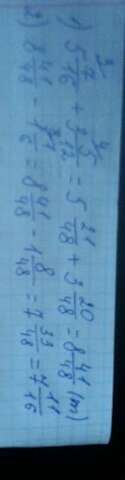 1) 5 7/16 + 3 5/12 = 5 21/48 + 3 20/48 = 8 41/48 (т)
2) 8 41/48 - 1 1/6 = 8 41/48 - 1 8/48 = 7 33/48 = 7 11/16